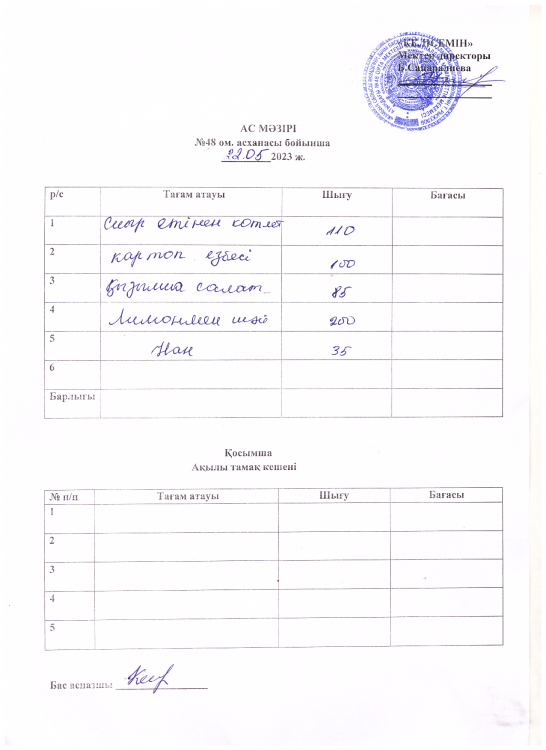 «КЕЛІСЕМІН»
Мектеп директоры
АС МӘЗІРІ
№48 ом. асханасы бойынша
22.05 2023 ж.
р/с Тағам атауы Шығу Бағасы
1 Сиыр етінен котлет 110
2 картоп езбесі 100
3 Қызылша салат 85
4 Лимонмен шәй 200
5 Нан 35
6
Барлығы
Қосымша
Ақылы тамақ кешені
№ п/п Тағам атауы Шығу Бағасы
1
2
3
4
5
Бас аспазшы